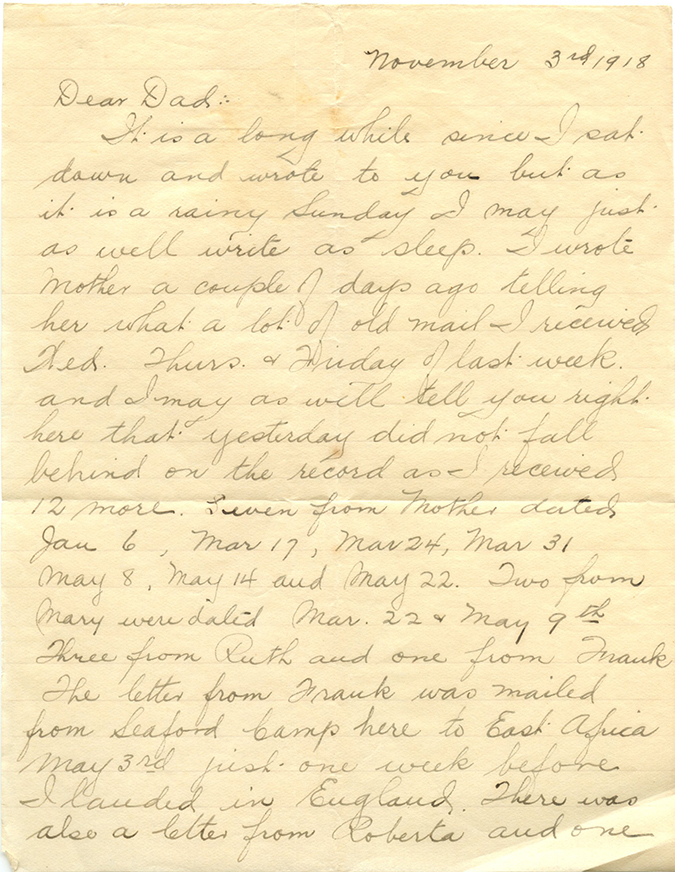 November 3rd 1918
Dear Dad:-
It is a long while since I sat
down and wrote to you but as
it is a rainy Sunday I may just
as well write as sleep. I wrote
Mother a couple of days ago telling
her what a lot of old mail I received
Wed. Thurs. & Friday of last week.
and I may as well tell you right
here that yesterday did not fall
behind on the record as I received
12 more. Seven from Mother dated
Jan 6, Mar 17, Mar 24, Mar 31
May 8, May 14 and May 22. Two from
Mary were dated Mar. 22 & May 9th
Three from Ruth and one from Frank
The letter from Frank was mailed
from Seaford Camp here to East Africa
May 3rd just one week before
I landed in England. There was
also a letter from Roberta and one